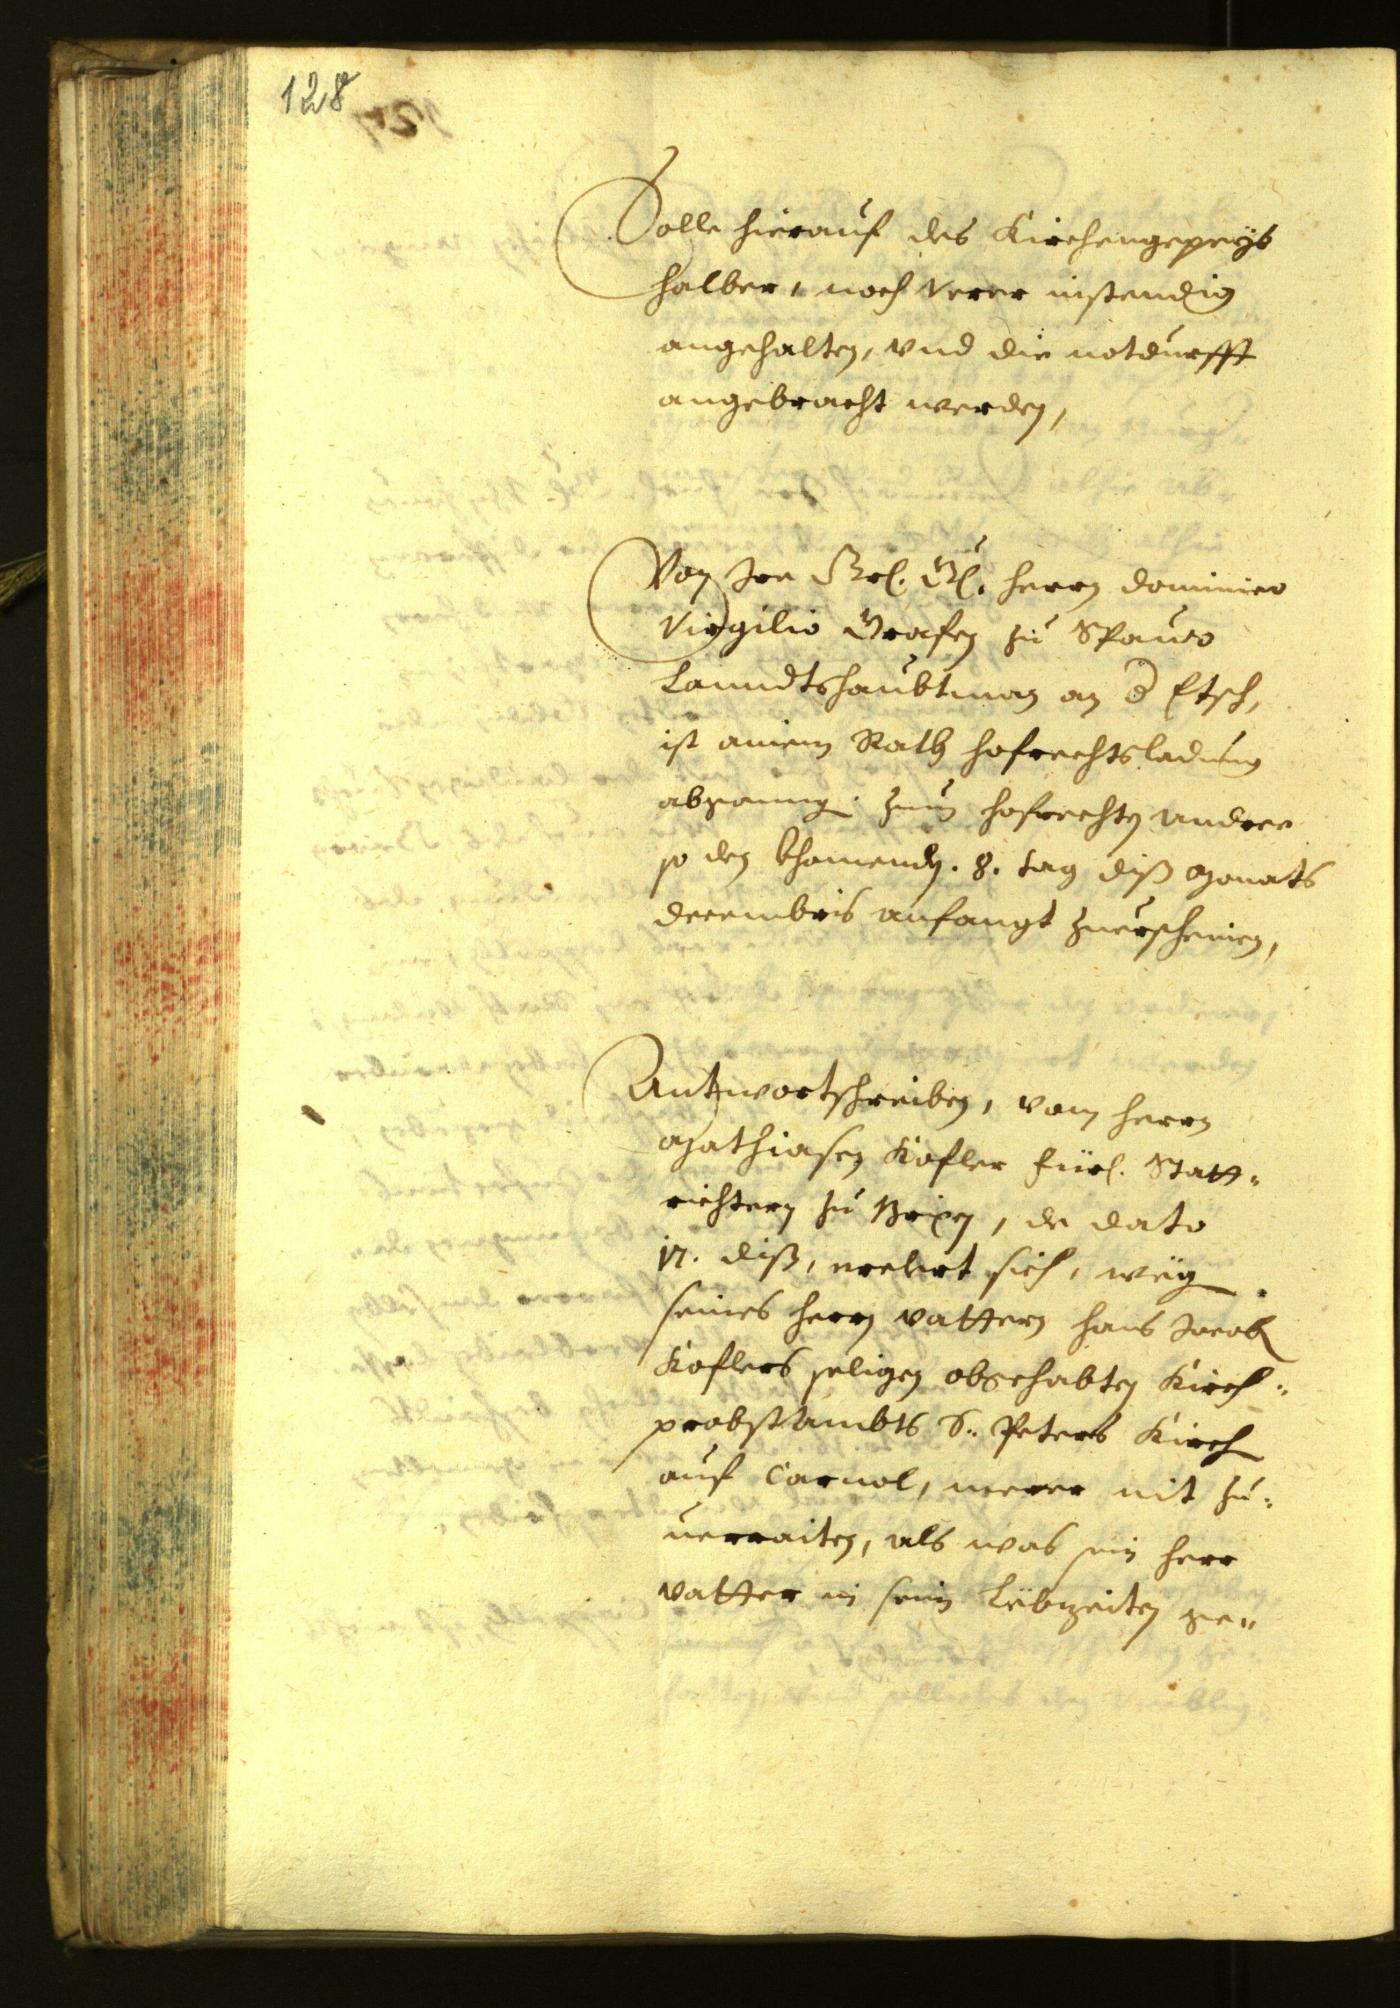 128
Solle hierauf des Kirchengepeys
halber, noch verer instendig
angehalten, vnd die notdurfft
angebracht werden,
Von Ire Grl. Gl. herrn Dominico
Virgilio Grafen zu Spauro
Lanndtshaubtman an d Etsch,
ist ainem Rath hofrechtsladung
abgangg. zum hofrechten andree
so den khomendn. 8. tag diß Monats
Decembris anfangt zuerscheinen,
Anntwortschreiben, vom herrn
Mathiasen Kofler Fürl. Statt-
richtern zu Brixen, de dato
17. diß, mit sich, weg
seines herrn vattern hans Jacob
Koflers seligen obgehabten Kirch-
probstambts S: Peters Kirch
auf Carnol, merer nit zu-
uerraiten, als was sein herr
vatter in sein Lebzeiten ge-